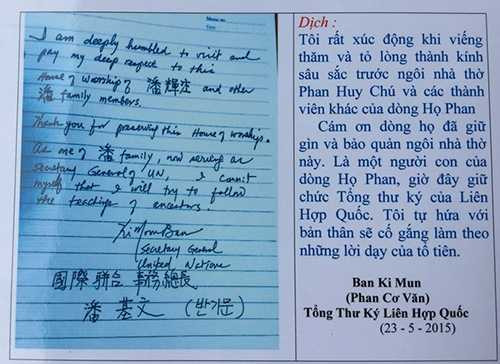 I am deeply humbled to visit and
pay my deep respect to this
House of Worship of 潘輝注 and other
潘 family members.
Thank you for preserving this House of worship.
As one of 潘 family, now serving as
Secretary General of UN, I commit
myself that I will try to follow
the teachings of ancestors.
Ki Moon Ban
Secretary General
United Nations
國際聯合 事務總長
潘基文 (반기문)
Dịch :
Tôi rất xúc động khi viếng
thăm và tỏ lòng thành kính
sâu sắc trước ngôi nhà thờ
Phan Huy Chú và các thành
viên khác của dòng Họ Phan
Cám ơn dòng họ đã giữ
gìn và bảo quản ngôi nhà thờ
này. Là một người con của
dòng Họ Phan, giờ đây giữ
chức Tổng thư ký của Liên
Hợp Quốc. Tôi tự hứa với
bản thân sẽ cố gắng làm theo
những lời dạy của tổ tiên.
Ban Ki Mun
(Phan Cơ Văn)
Tổng Thư Ký Liên Hợp Quốc
(23 - 5 - 2015)